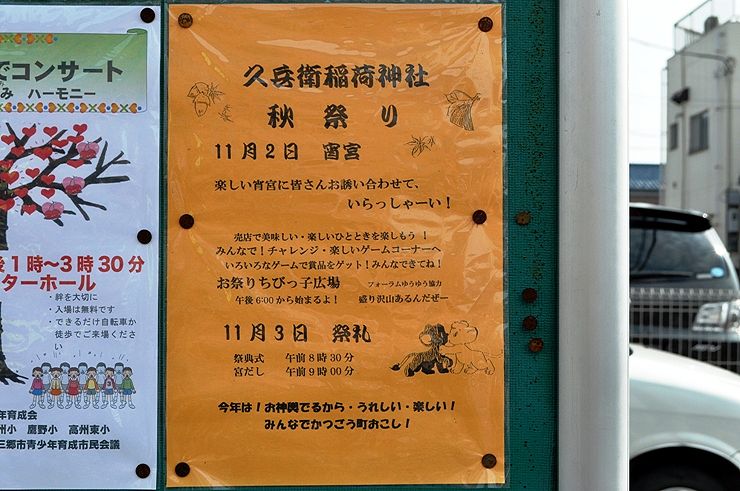 でコンサート
み ハーモニー
後1時~3時30分
ターホール
・絆を大切に
・入場は無料です
・できるだけ自転車か
徒歩でご来場くださ
い
年育成会
州小 鷹野小 高州東小
三郷市青少年育成市民会議
久兵衛稲荷神社
秋祭り
11月2日 宵宮
楽しい宵宮に皆さんお誘い合わせて、
いらっしゃーい!
売店で美味しい・楽しいひとときを楽しもう!
みんなで!チャレンジ・楽しいゲームコーナーへ
いろいろなゲームで賞品をゲット!みんなできてね!
お祭りちびっ子広場 フォーラムゆうゆう協力
午後6:00から始まるよ! 盛り沢山あるんだぜー
11月3日 祭礼
祭典式 午前8時30分
宮だし 午前9時00分
今年は!お神輿でるから・うれしい・楽しい!
みんなでかつごう町おこし!